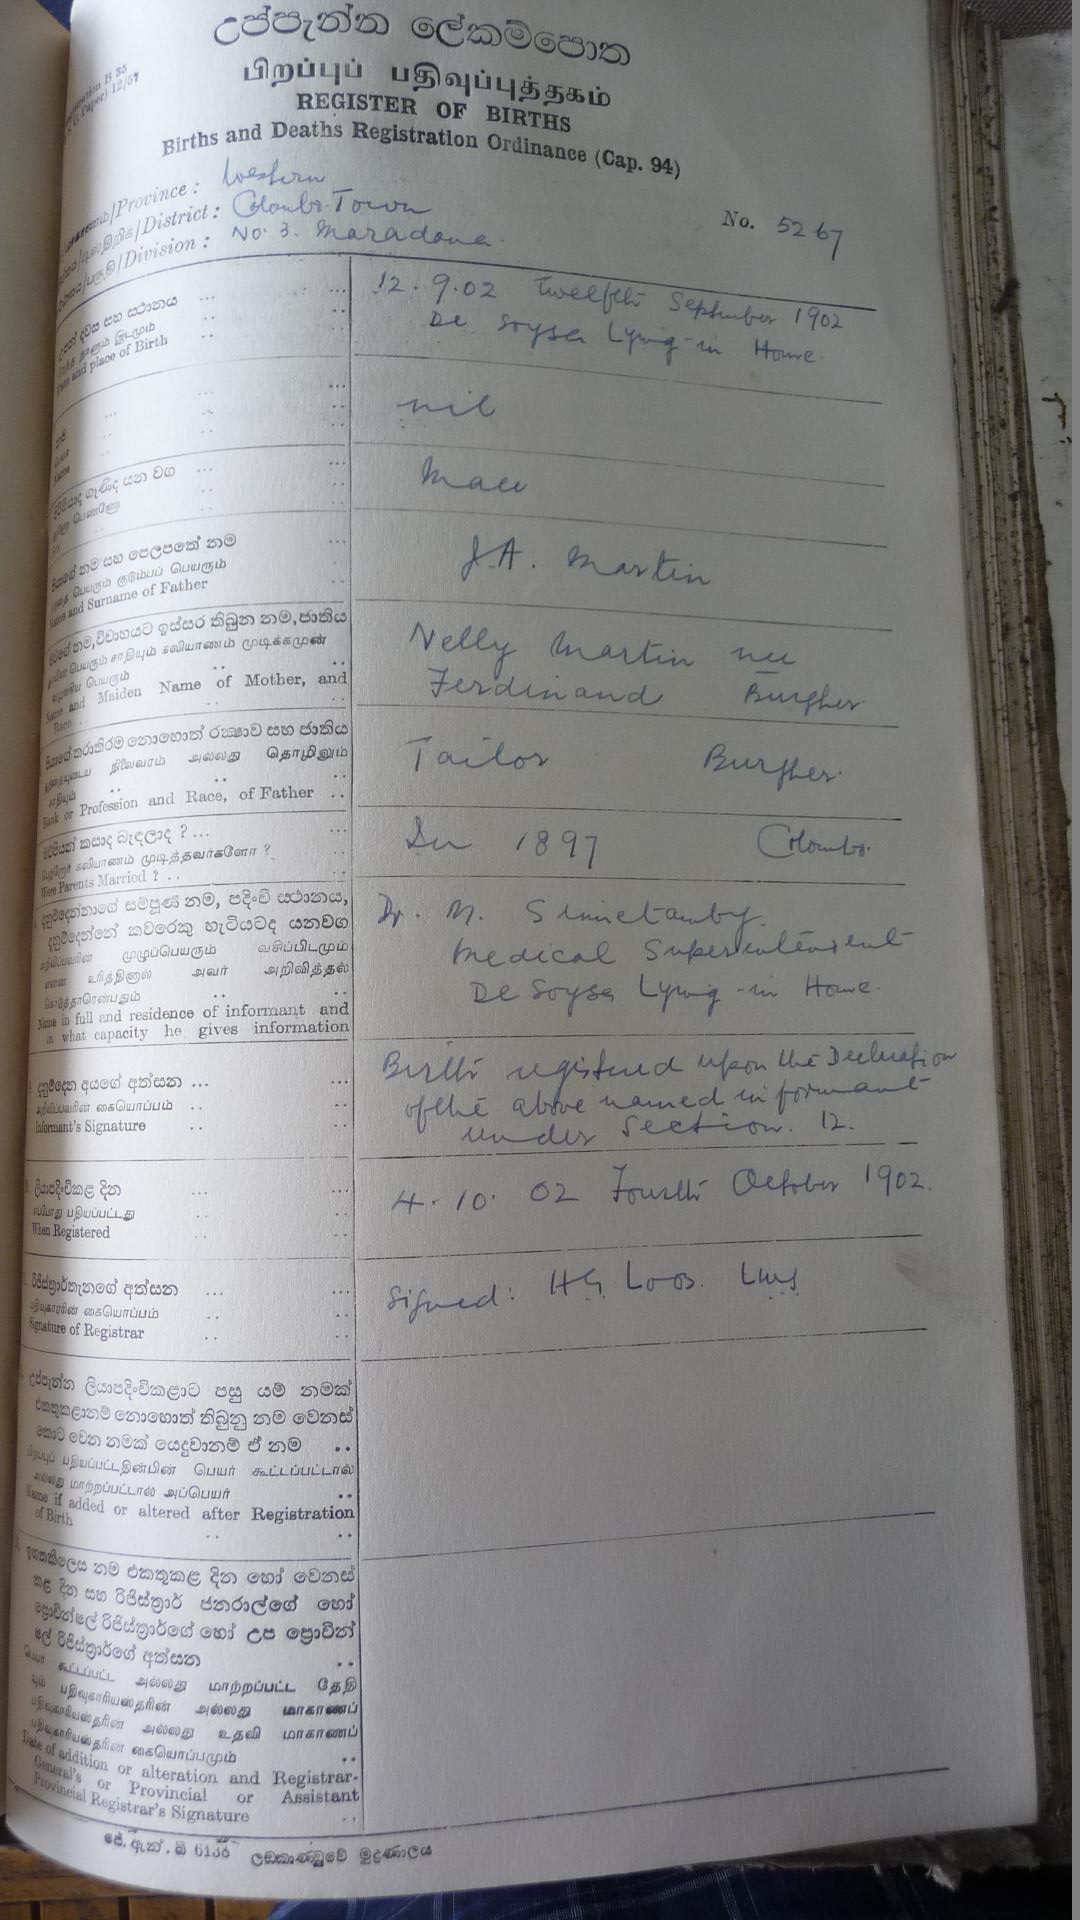 උප්පැන්න ලේකම්පොත
பிறப்புப் பதிவுப்புத்தகம்
REGISTER OF BIRTHS
Births and Deaths Registration Ordinance (Cap. 94)
B 35
12/57
/Province : Western
/District : Colombo Town
No. 5267
/Division : No. 3. Maradana.
උපන් දවස සහ ස්ථානය ... ...
Date and place of Birth
12. 9. 02 Twelfth September 1902
De Soysa Lying-in Home.
නම
Name
nil
Male
පියාගේ නම සහ පෙලපතේ නම ...
பெயரும் குடும்பப் பெயரும்
Name and Surname of Father
J. A. Martin
නම, විවාහයට ඉස්සර තිබුන නම, ජාතිය
பெயரும் சாதியும் கலியாணம் முடிக்கமுன்
பெயரும்
Name and Maiden Name of Mother, and
Race
Nelly Martin nee
Ferdinand Burgher.
පියාගේ තරාතිරම නොහොත් රක්‍ෂාව සහ ජාතිය
நிலைவரம் அல்லது தொழிலும்
சாதியும்
Rank or Profession and Race, of Father ..
Tailor Burgher.
කසාද බැඳලාද ? ... ...
கலியாணம் முடித்தவர்களோ ?
Were Parents Married ? ..
In 1897 Colombo.
දනුම්දෙන්නාගේ සම්පූර්‍ණ නම, පදිංචි ස්ථානය,
දනුම්දෙන්නේ කවරෙකු හැටියටද යනවග
அறிவிப்பவரின் முழுப்பெயரும் வசிப்பிடமும்
என்ன உரித்தினால் அவர் அறிவித்தல்
கொடுத்தாரென்பதும்
Name in full and residence of informant and
in what capacity he gives information
Dr. N. Sinnetamby.
Medical Superintendent
De Soysa Lying-in Home.
දනුම්දෙන අයගේ අත්සන ... ...
அறிவிப்பவரின் கையொப்பம் ..
Informant's Signature ..
Birth registered upon the Declaration
of the above named informant
under Section. 12.
ලියාපදිංචිකළ දින ... ...
எப்போது பதியப்பட்டது ..
When Registered ..
4. 10. 02 Fourth October 1902.
රිජිස්ත්‍රාර්තැනගේ අත්සන ... ...
பதிவுகாரரின் கையொப்பம் ..
Signature of Registrar ..
Signed: HG Loos.
උප්පැන්න ලියාපදිංචිකළාට පසු යම් නමක්
එකතුකළානම් නොහොත් තිබුනු නම වෙනස්
කොට වෙන නමක් යෙදුවානම් ඒ නම ..
பிறப்புப் பதியப்பட்டதின்பின் பெயர் கூட்டப்பட்டால்
அல்லது மாற்றப்பட்டால் அப்பெயர் ..
Name if added or altered after Registration
of Birth .. ..
ඉහතකීලෙස නම එකතුකළ දින හෝ වෙනස්
කළ දින සහ රිජිස්ත්‍රාර් ජනරාල්ගේ හෝ
ප්‍රොවින්ෂල් රිජිස්ත්‍රාර්ගේ හෝ උප ප්‍රොවින්
ෂල් රිජිස්ත්‍රාර්ගේ අත්සන ..
பெயர் கூட்டப்பட்ட அல்லது மாற்றப்பட்ட தேதி
யும் பதிவுகாரியஸ்தரின் அல்லது மாகாணப்
பதிவுகாரியஸ்தரின் அல்லது உதவி மாகாணப்
பதிவுகாரியஸ்தரின் கையொப்பமும் ..
Date of addition or alteration and Registrar-
General's or Provincial or Assistant
Provincial Registrar's Signature ..
ජේ. ඇන්. බී 6138 ලඞ්කාණ්ඩුවේ මුද්‍රණාලය